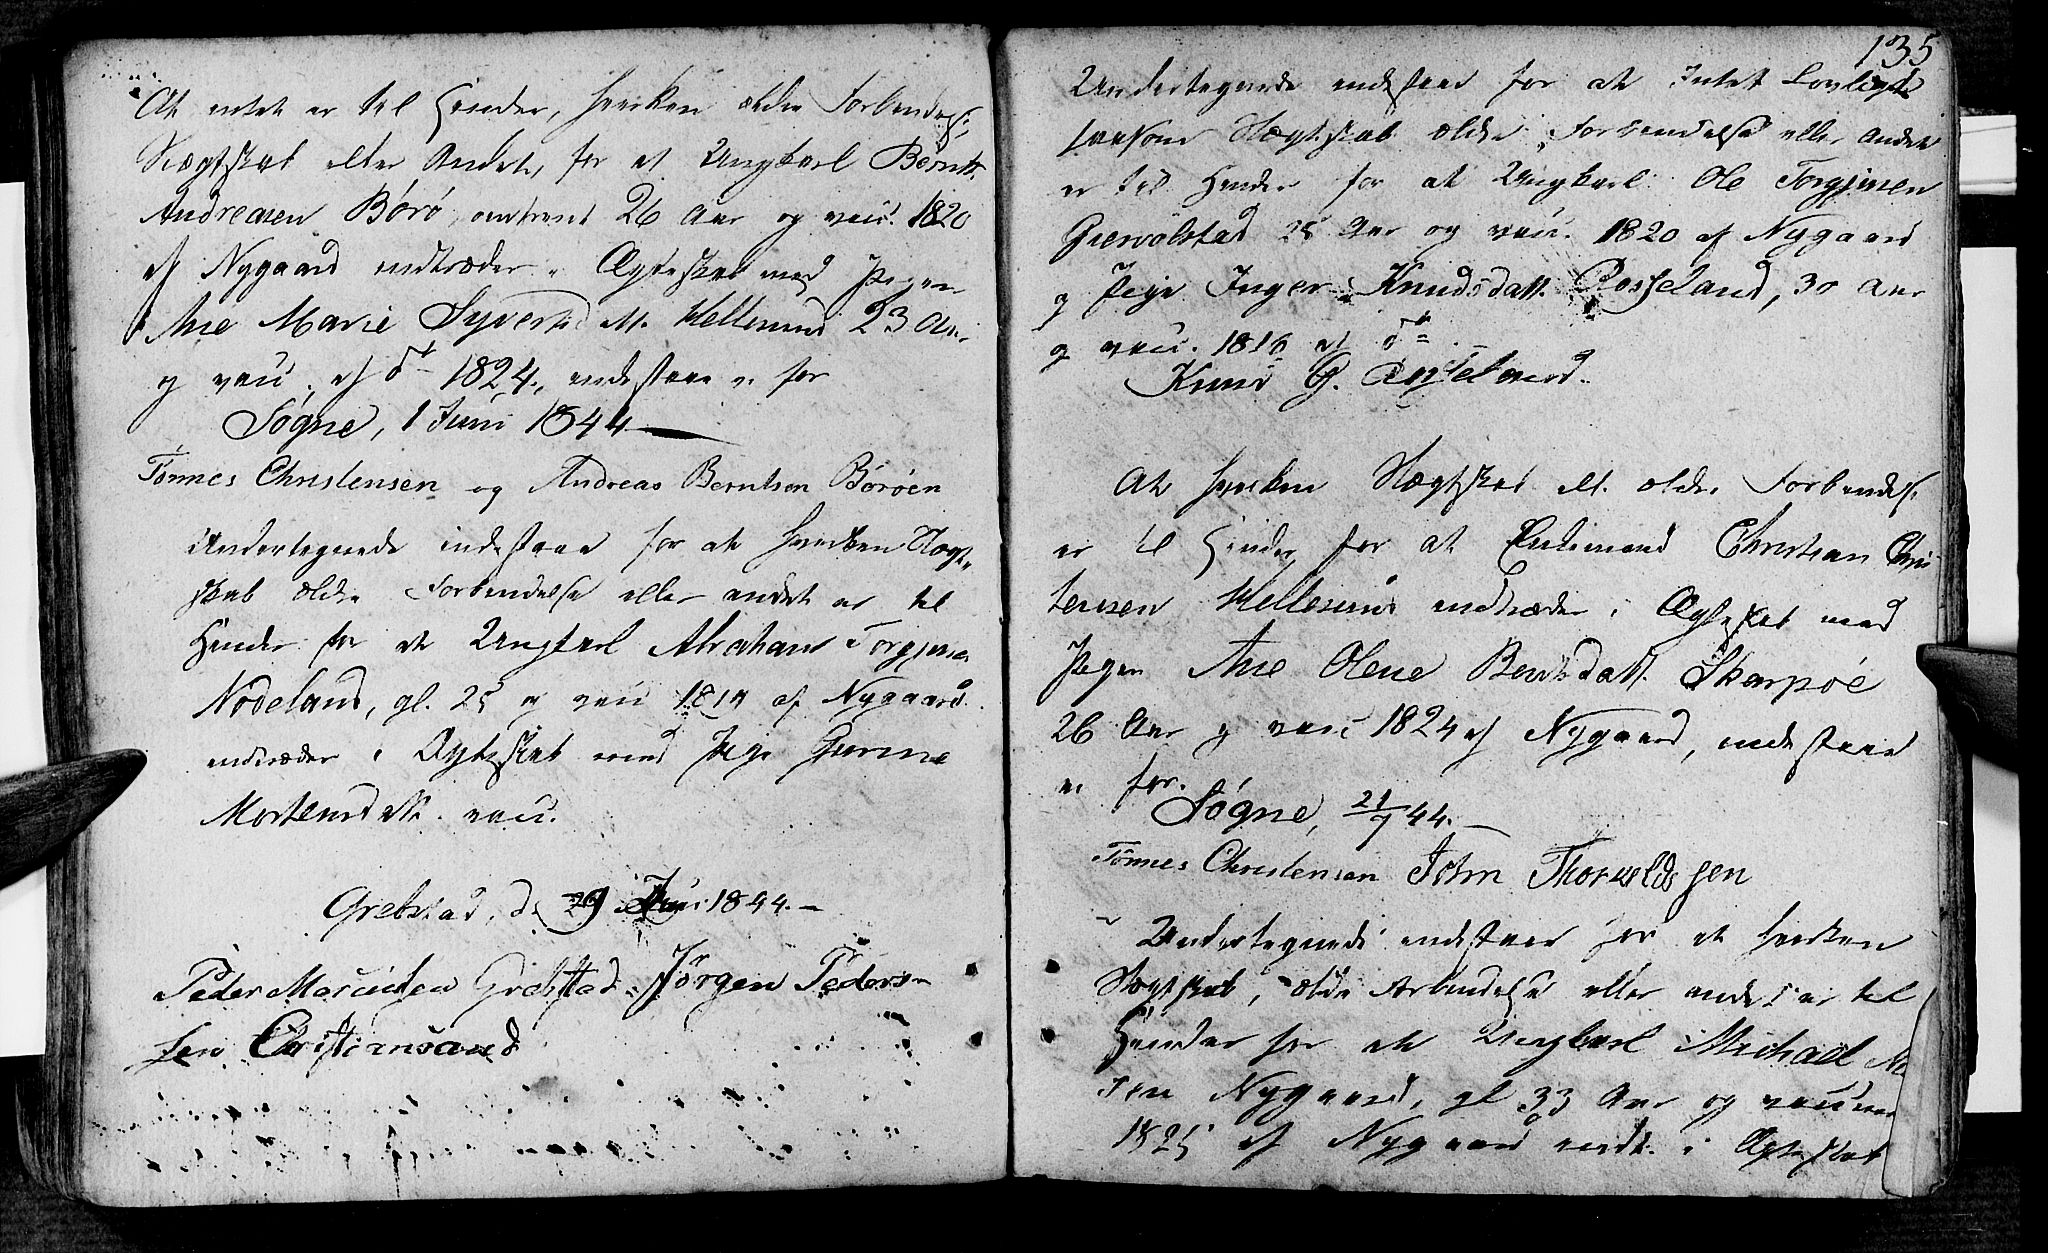 At intet er til Hinder, hverken ældre Forbindelse,
Slægtskab eller Andet, for at Ungkarl Berntt
Andreasen Børø, omtrent 26 Aar og vacc. 1820
af Nygaard indtræder i Ægteskab med Pigen
Ane Marie Syvertsd att. Hellesund 23 Aar
og vacc. af do 1824, indestaae vi for
Søgne, 1 Juni 1844
Tønnes Christensen og Andreas Berntsen Børøen
Undertegnede indestaae for at hverken Slægt
skab ældre Forbindelse eller andet er til
Hinder for at Ungkarl Abraham Torgjusen
Nodeland, gl. 25 og vacc 1819 af Nygaard
indtræder i Ægteskab med Pige Gurine
Mortensdatt. vacc.
Grebstad, d. 29 Juni 1844.
Peder Mareussen Grebstad Jørgen Peders
sen Christiansand
135
Undertegnede indestaae for at Intet Lovligt
saasom Slægtskab ældre Forbindelse eller andet
er til Hinder for at Ungkarl Ole Torgjusen
Grevolstad 25 Aar og vacc. 1820 af Nygaard
og Pige Inger Knudsdatt. Rosseland, 30 Aar
og vacc. 1816 af do
Knud G. Rosseland.
At hverken Slægtskab ell. ældre Forbindelse
er til Hinder for at Enkemand Christian Chris
tensen Hellesund indtræder i Ægteskab med
Pigen Ane Olene Berntsdatt. Skarpøe
26 Aar og vacc 1824 af Nygaard, indestaae
vi for.
Søgne, 21/7 44.
Tønnes Christensen John Thorkelds sen
Undertegnede indestaae for at hverken
Slægtskab, ældre Forbindelse eller andet er til
Hinder for at Ungkarl Michael
sen Nygaard, gl 33 Aar og vaccineret
1825 af Nygaard indt. i Ægteskab